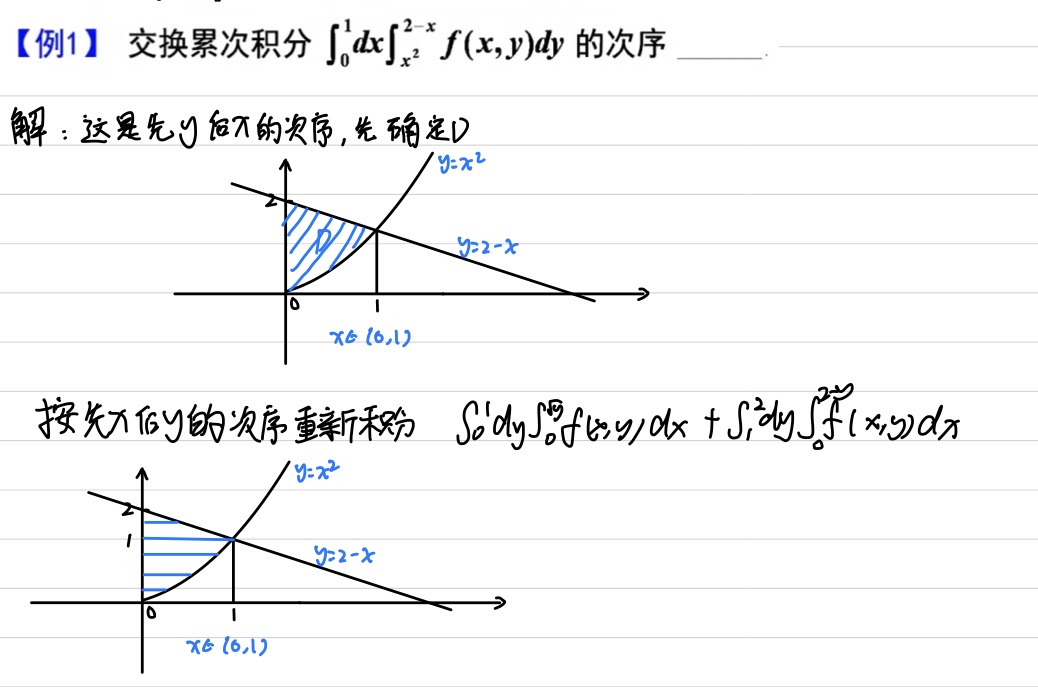 【例1】 交换累次积分 ∫₀¹dx∫ₓ²^{2-x} f(x,y)dy 的次序 ______.
解：这是先y后x的次序,先确定D
y=x²
2
D
y=2-x
0
1
x∈(0,1)
按先x后y的次序重新积分 ∫₀¹dy∫₀^{√y}f(x,y)dx + ∫₁²dy∫₀^{2-y}f(x,y)dx
y=x²
2
1
y=2-x
0
1
x∈(0,1)